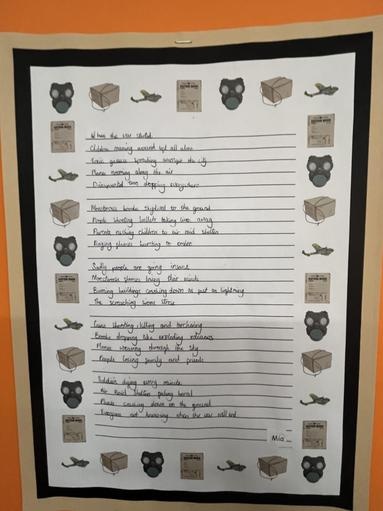 When the war started.
Children running around left all alone
Toxic gasses spreading amongst the city
Planes roaming along the air
dropping everywhere

Monstrous bombs exploded to the ground
People shooting bullets taking lives away
Parents rushing children to air raid shelter
Raging planes hurting to enter

Sadly people are going insane
Monstrous losing their minds
Burning buildings crashing down as just as lightning
The screaching

Guns shooting killing and
Bombs dropping like exploding volcanoes
Planes weaving through the sky
People losing family and friends

Soldiers dying every minute
Air Raid shelter getting
Planes crashing down on the ground
Everyone not knowing when the war will end
Mia